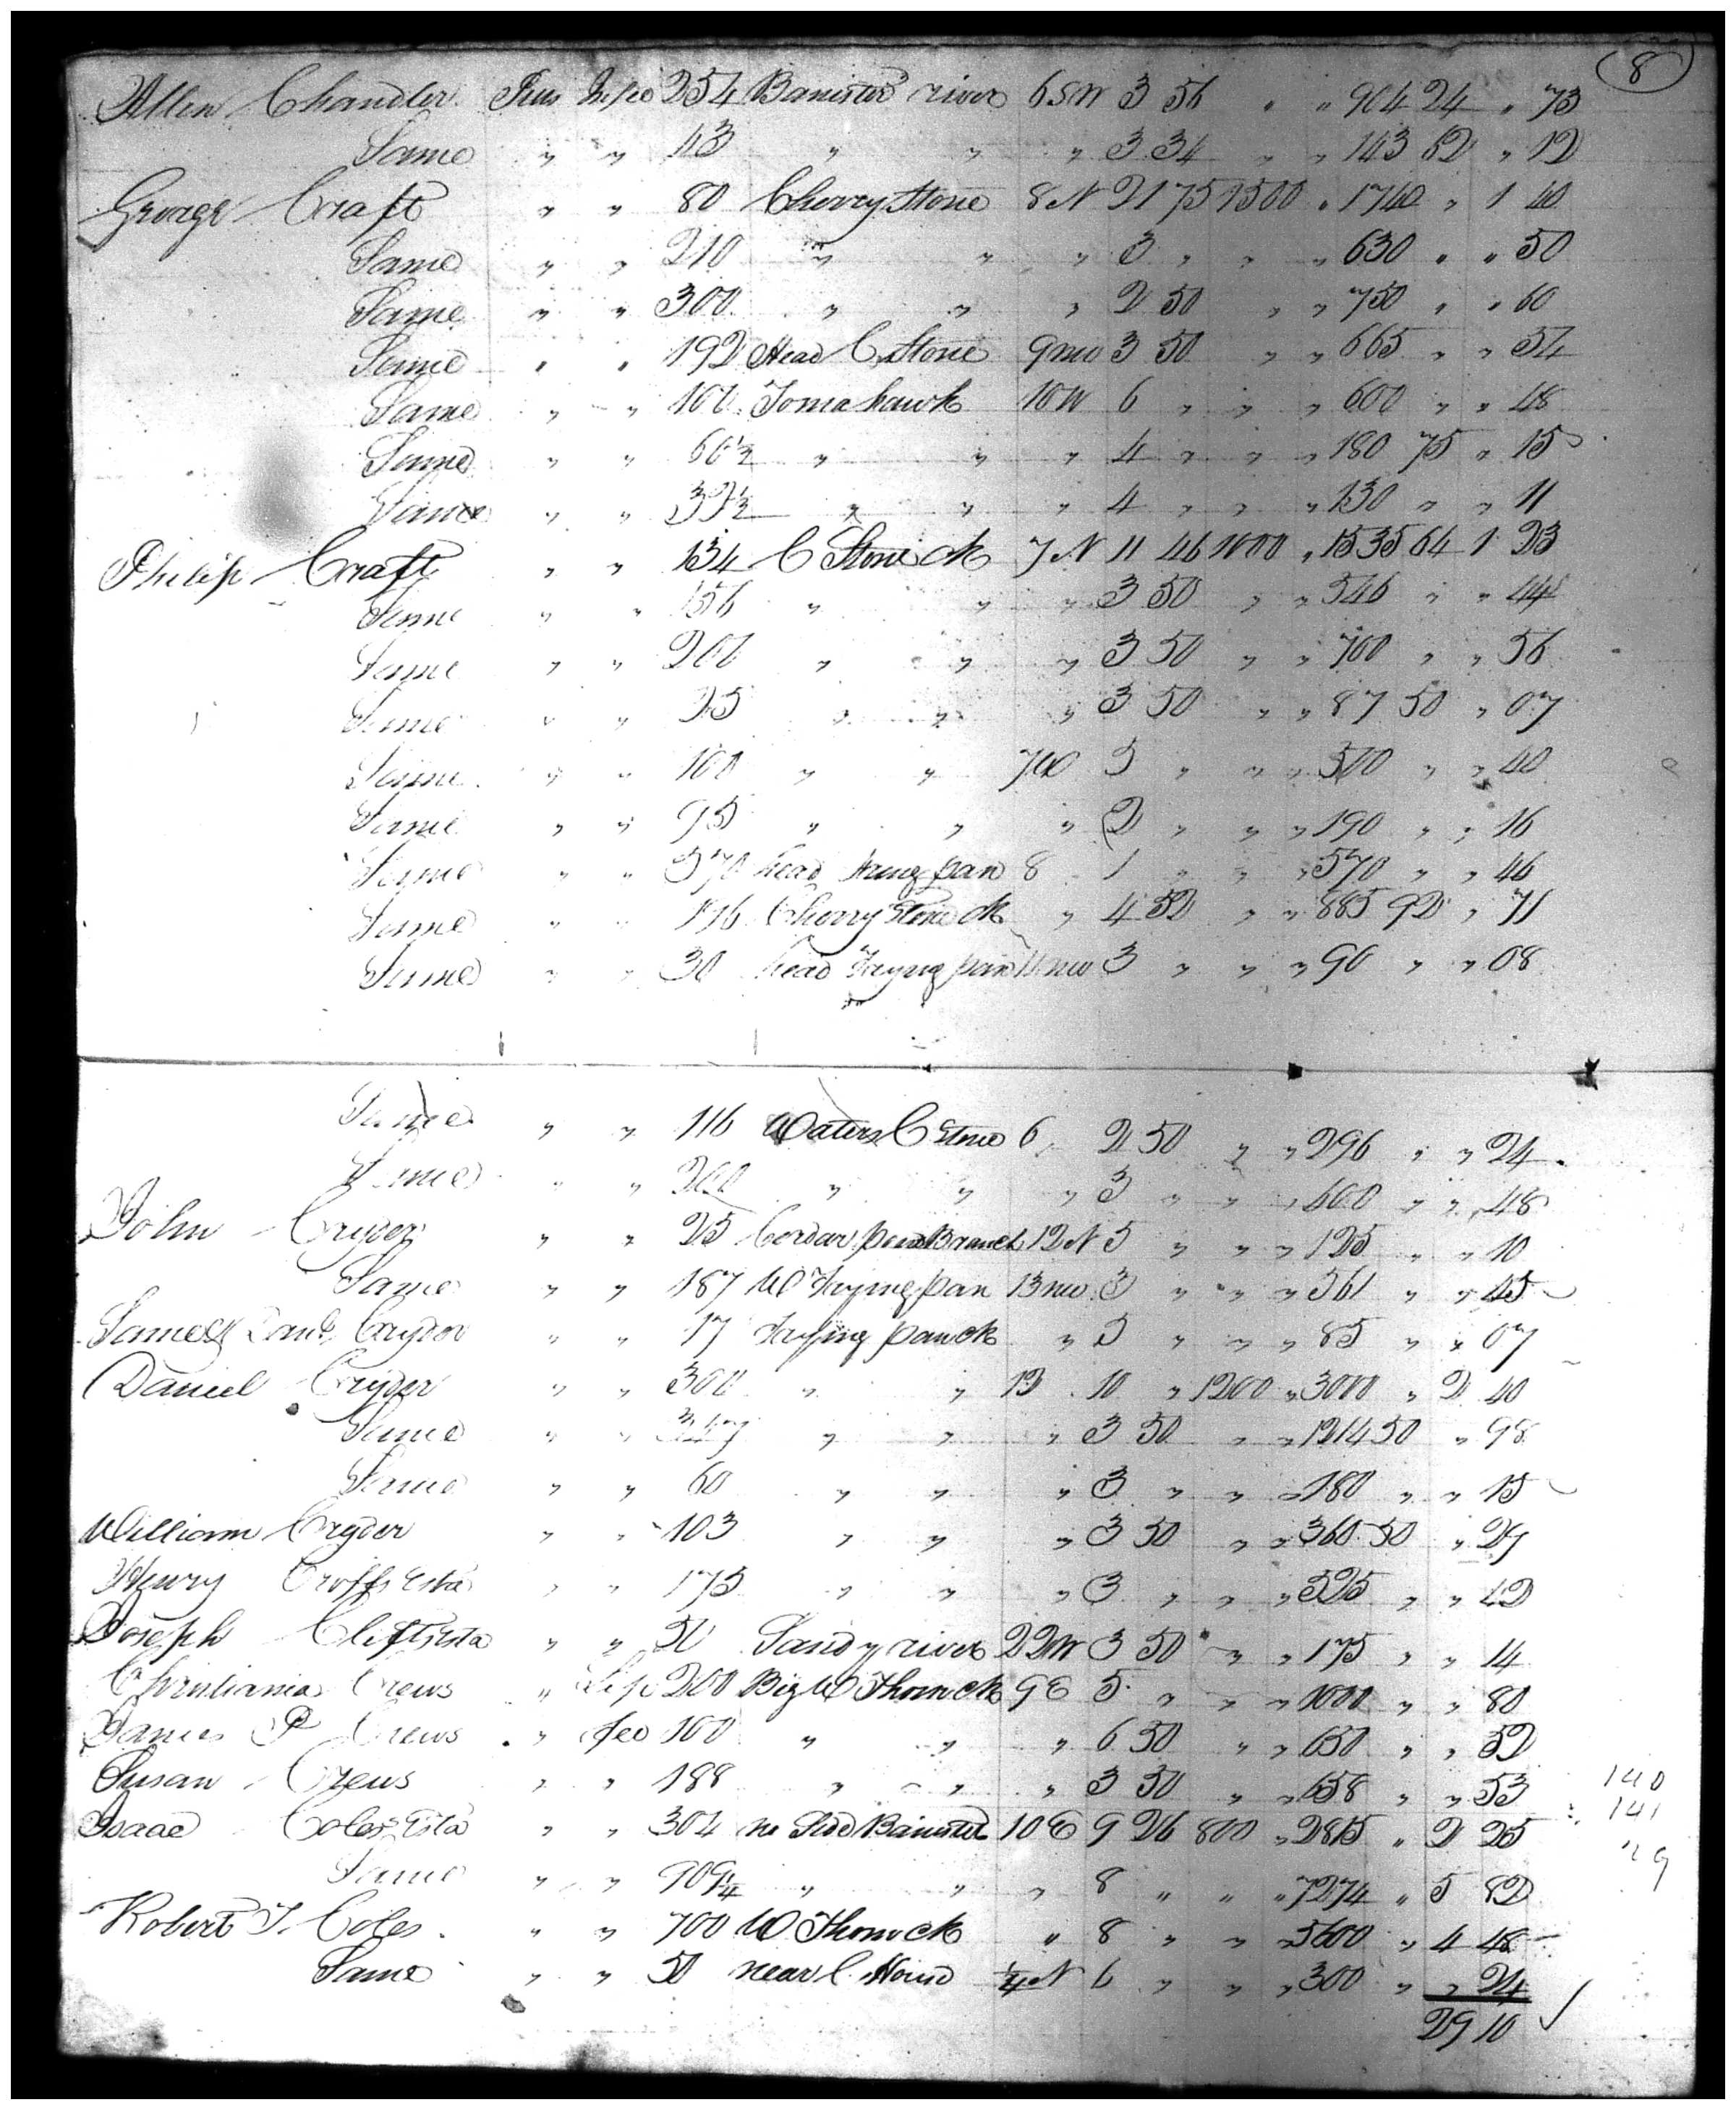 8
Allen Chandler Pitts In feo 254 Banister river 6 SW 3 56 " " 904 24 " 73
Same " " 43 " " " 3 34 " " 143 62 " 12
George Craft " " 80 Cherry Stone 8 N 21 75 1500 " 1740 " 1 40
Same " " 210 " " " 3 " " " 630 " " 50
Same " " 300 " " " 2 50 " " 750 " " 60
Same " " 192 Head C Stone 9 nw 3 50 " " 665 " " 54
Same " " 100 Tomahawk 10 W 6 " " " 600 " " 48
Same " " " " " 4 " " " 180 75 " 15
Same " " " " " 4 " " " 130 " " 11
Philip Craft " " 134 C Stone ck 7 N 11 46 1000 " 1535 64 1 23
Same " " 156 " " " 3 50 " " 546 " " 44
Same " " 200 " " " 3 50 " " 700 " " 56
Same " " 25 " " " 3 50 " " 87 50 " 07
Same " " 100 " " 7 W 5 " " " 500 " " 40
Same " " 95 " " " 2 " " " 190 " " 16
Same " " 570 head frying pan 8 1 " " " 570 " " 46
Same " " 196 Cherry Stone ck " 4 52 " " 885 92 " 71
Same " " 30 head frying pan 11 nw 3 " " " 90 " " 08
Same " " 116 Waters C Stone 6 " 2 50 " " 296 " " 24
Same " " 200 " " " 3 " " " 600 " " 48
John Cryder " " 25 Branch 12 N 5 " " " 125 " " 10
Same " " 187 W Frying pan 13 nw 3 " " " 561 " " 45
Cryder " " 17 frying pan ck " 5 " " " 85 " " 07
Daniel Cryder " " 300 " " 12 10 " 1200 " 3000 " 2 40
Same " " 347 " " " 3 50 " " 1214 50 " 98
Same " " 60 " " " 3 " " " 180 " " 15
William Cryder " " 103 " " " 3 50 " " 360 50 " 29
Henry Esta " " 175 " " " 3 " " " 525 " " 42
Joseph Clifts Esta " " 50 Sandy river 22 W 3 50 " " 175 " " 14
Christiania Crews " life 200 Big W Thorn ck 9 E 5 " " " 1000 " " 80
James P Crews " feo 100 " " " 6 50 " " 650 " " 52
Susan Crews " " 188 " " " 3 50 " " 658 " " 53 140
Isaac Coles Esta " " 304 no Side Banister 10 E 9 26 800 " 2815 " 2 25 141
Same " " 909¼ " " " 8 " " " 7274 " 5 82
Robert T. Coles " " 700 W Thorn ck " 8 " " " 5600 " 4 48
Same " " 50 near C. House ¼ N 6 " " " 300 " " 24
29 10